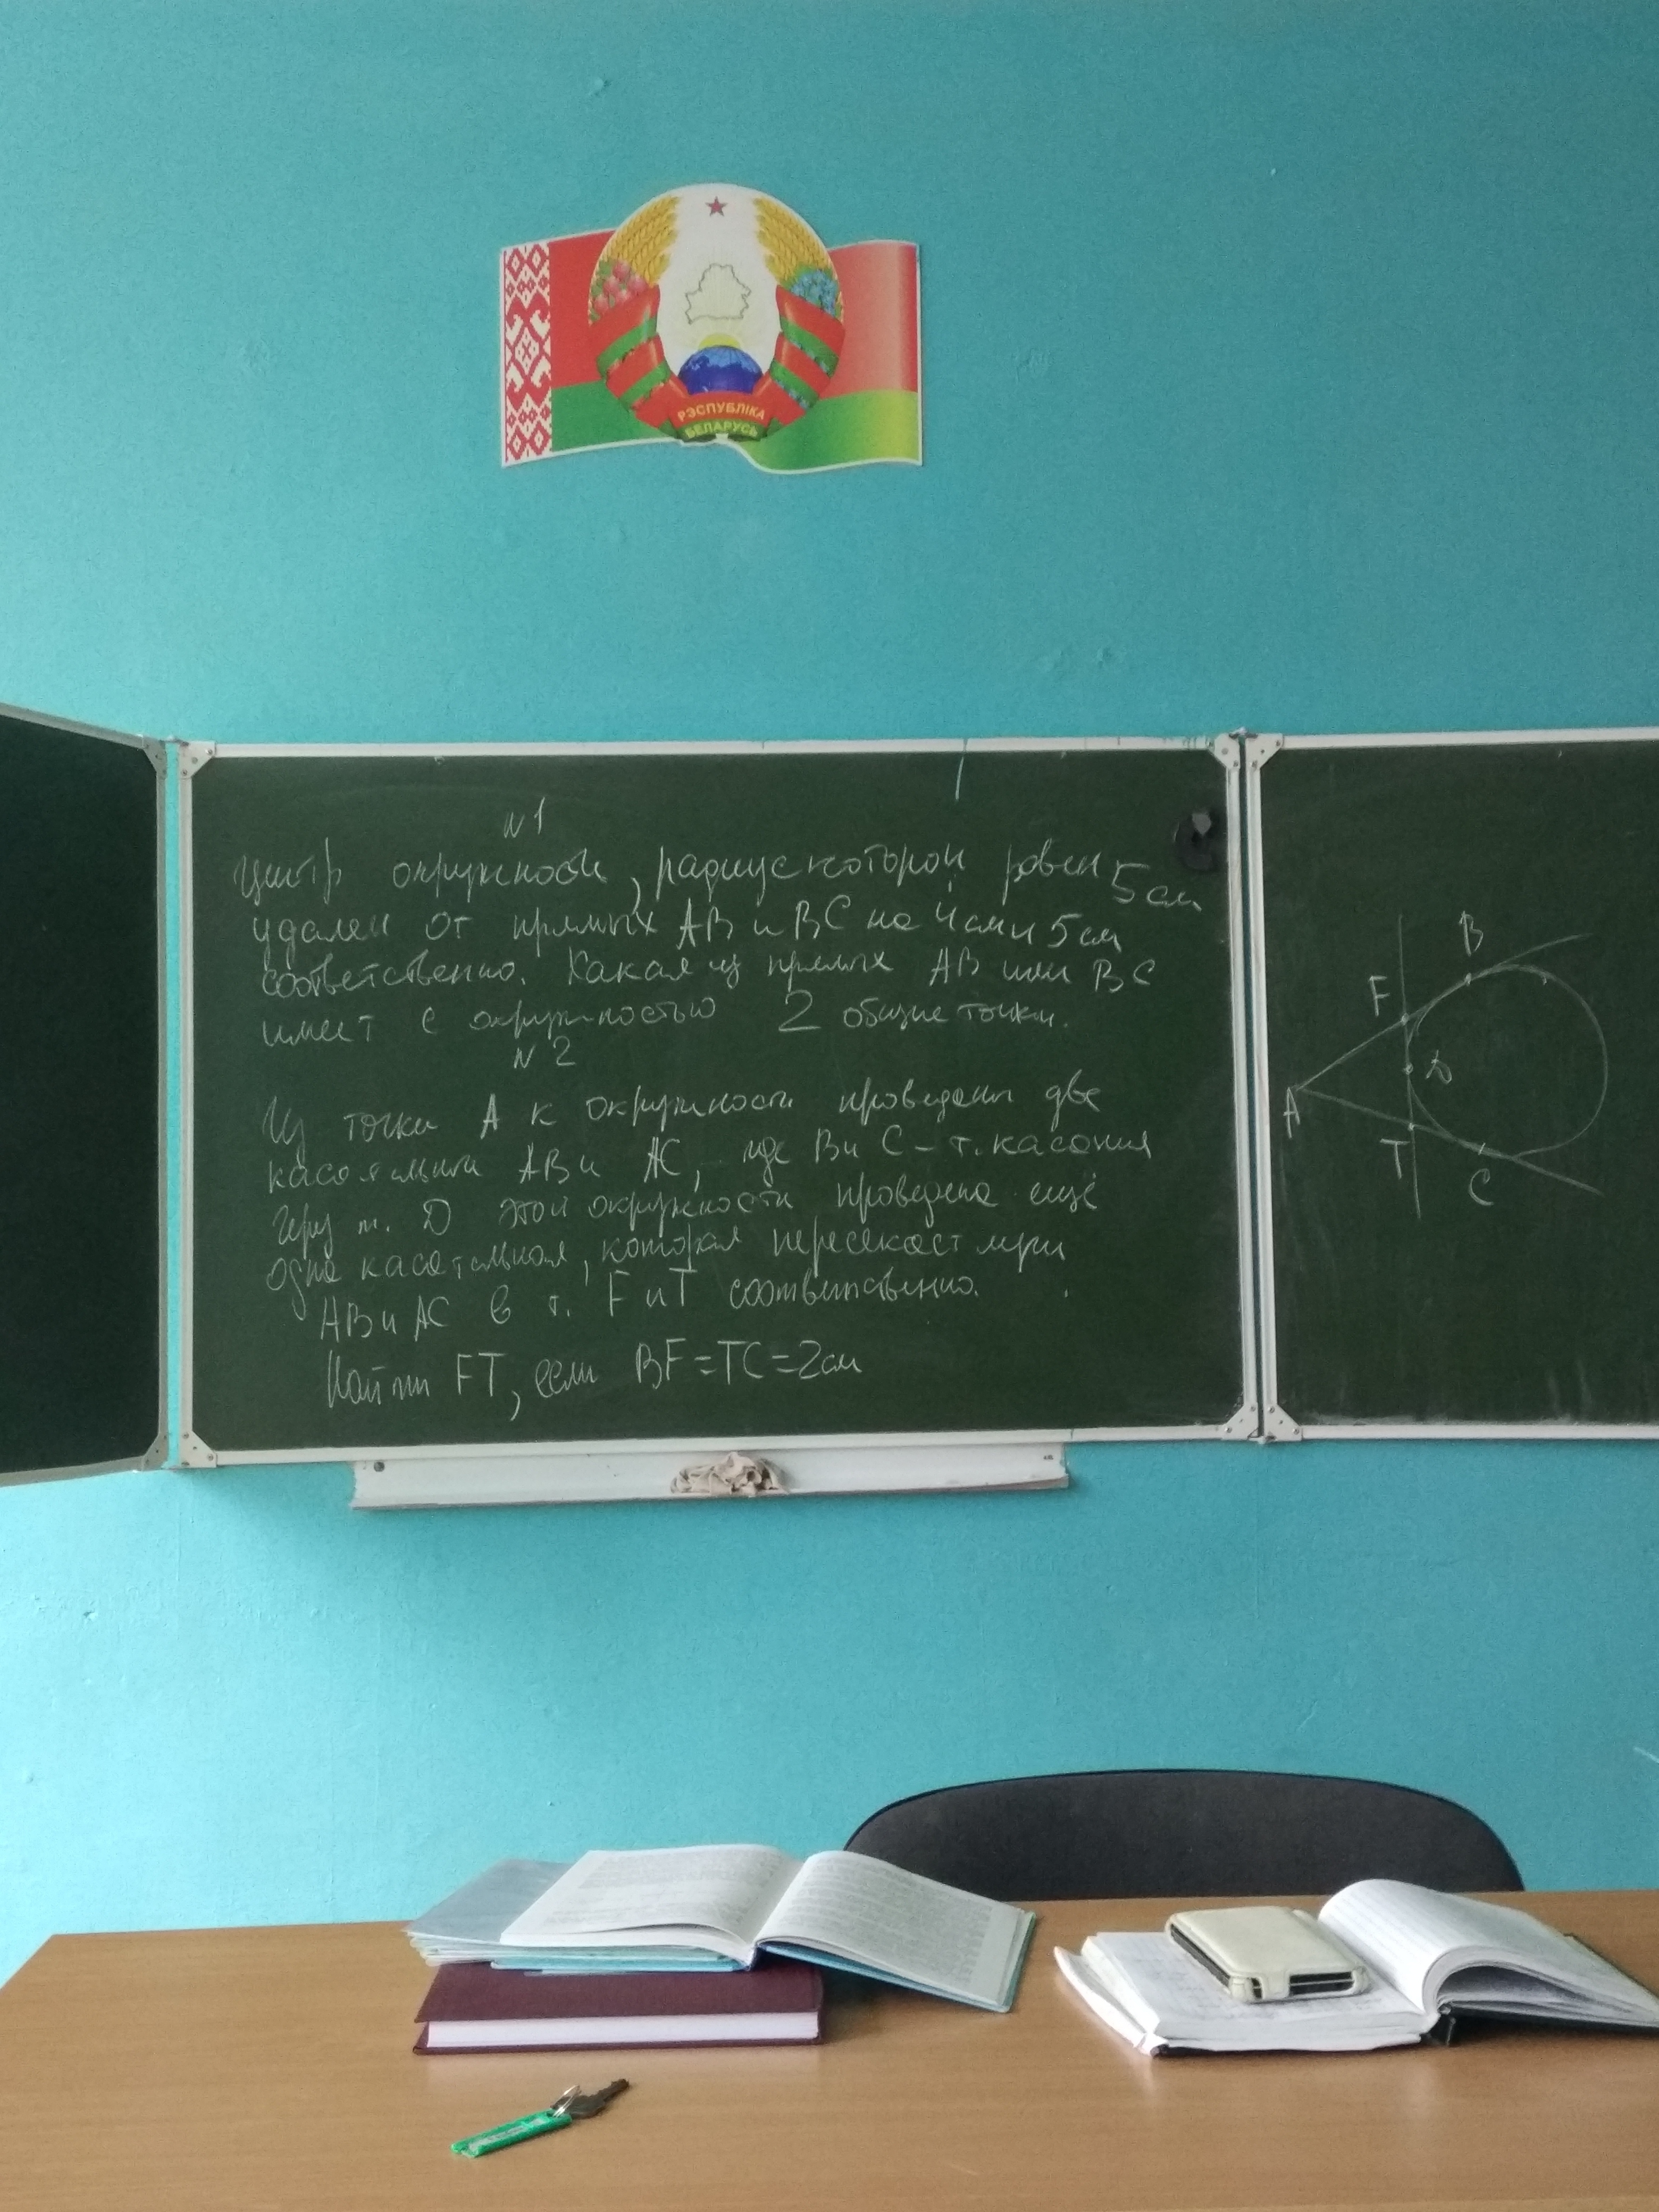 РЭСПУБЛІКА
БЕЛАРУСЬ
N1
Центр окружности, радиус которой равен 5 см
удален от прямых AB и BC на 4 см и 5 см
соответственно. Какая из прямых AB или BC
имеет с окружностью 2 общие точки.
N2
Из точки A к окружности проведены две
касательные AB и AC, где B и C - т. касания
Через т. D этой окружности проведена ещё
одна касательная, которая пересекает
AB и AC в т. F и T соответственно.
Найти FT, если BF=TC=2см
B
F
D
A
T
C